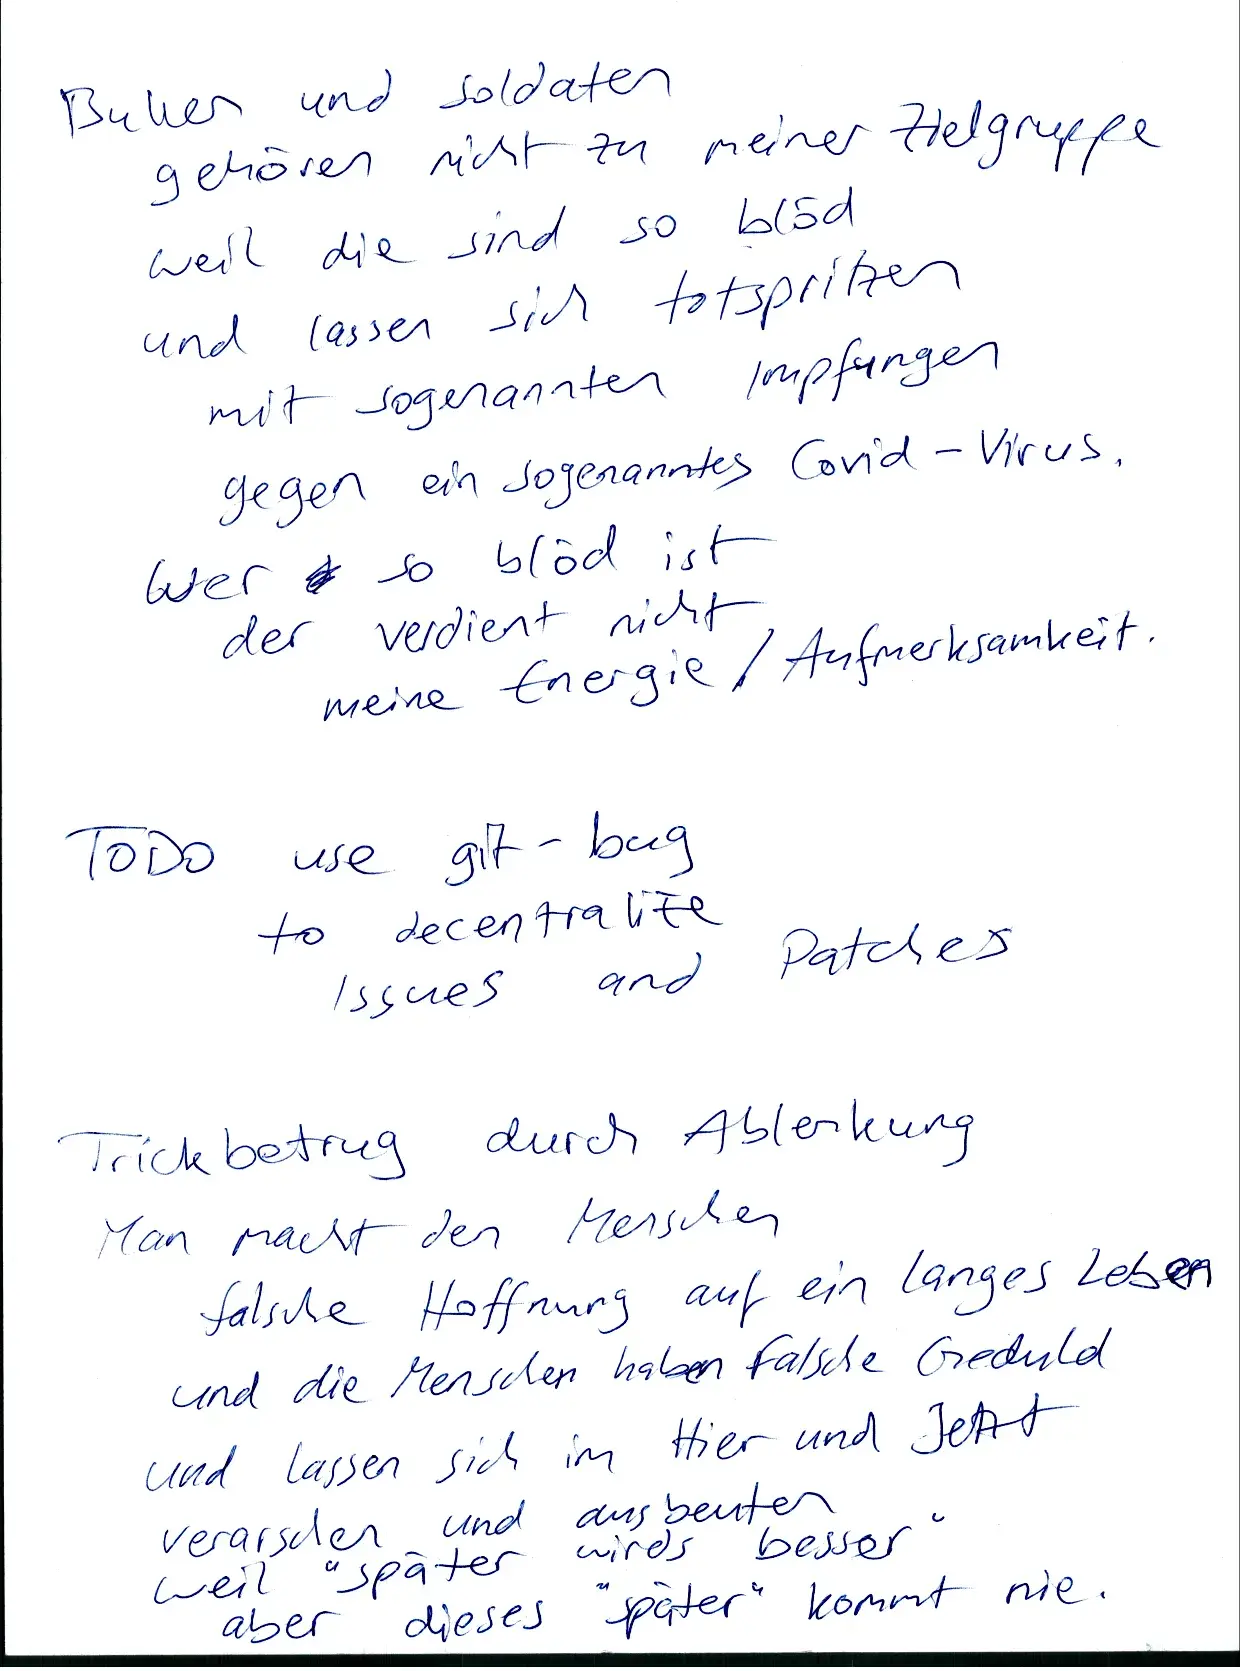 Bullen und soldaten
gehören nicht zu meiner Zielgruppe
weil die sind so blöd
und lassen sich totspritzen
mit sogenannten Impfungen
gegen ein sogenanntes Covid-Virus.
Wer so blöd ist
der verdient nicht
meine Energie / Aufmerksamkeit.
TODO use git-bug
to decentralize
issues and patches
Trickbetrug durch Ablenkung
Man macht den Menschen
falsche Hoffnung auf ein langes Leben
und die Menschen haben falsche Geduld
und lassen sich im Hier und Jetzt
verarschen und ausbeuten
weil "später wirds besser"
aber dieses "später" kommt nie.